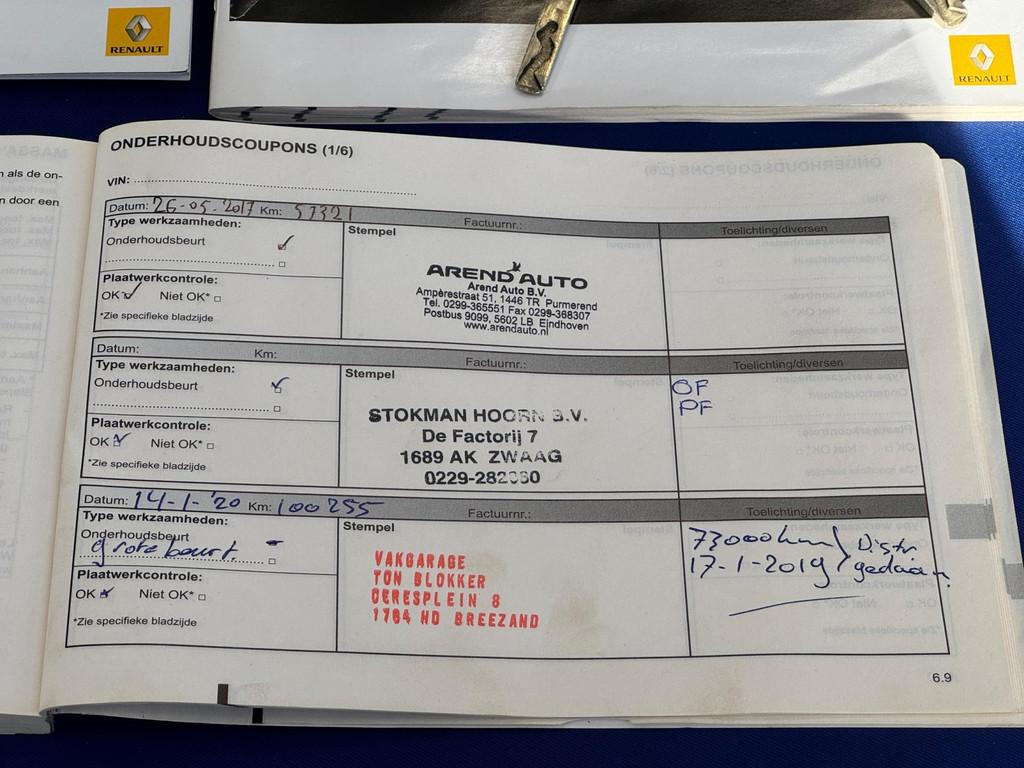 RENAULT
RENAULT
n als de on-
n door een
ONDERHOUDSCOUPONS (1/6)
VIN:
Datum: 26-05-2017 Km: 57321 Factuurnr.: Toelichting/diversen
Type werkzaamheden:
Onderhoudsbeurt
Stempel
AREND AUTO
Arend Auto B.V.
Ampèrestraat 51, 1446 TR Purmerend
Tel. 0299-365551 Fax 0299-368307
Postbus 9099, 5602 LB Eindhoven
www.arendauto.nl
Plaatwerkcontrole:
OK Niet OK*
*Zie specifieke bladzijde
Datum: Km: Factuurnr.: Toelichting/diversen
Type werkzaamheden:
Onderhoudsbeurt
Stempel
STOKMAN HOORN B.V.
De Factorij 7
1689 AK ZWAAG
OF
PF
Plaatwerkcontrole:
OK Niet OK*
*Zie specifieke bladzijde
Datum: 14-1-'20 Km: 100255 Factuurnr.: Toelichting/diversen
Type werkzaamheden:
Onderhoudsbeurt
grote beurt
Stempel
VAKGARAGE
TON BLOKKER
CERESPLEIN 8
1764 HD BREEZAND
73000km Distr
17-1-2019 gedaan
Plaatwerkcontrole:
OK Niet OK*
*Zie specifieke bladzijde
6.9